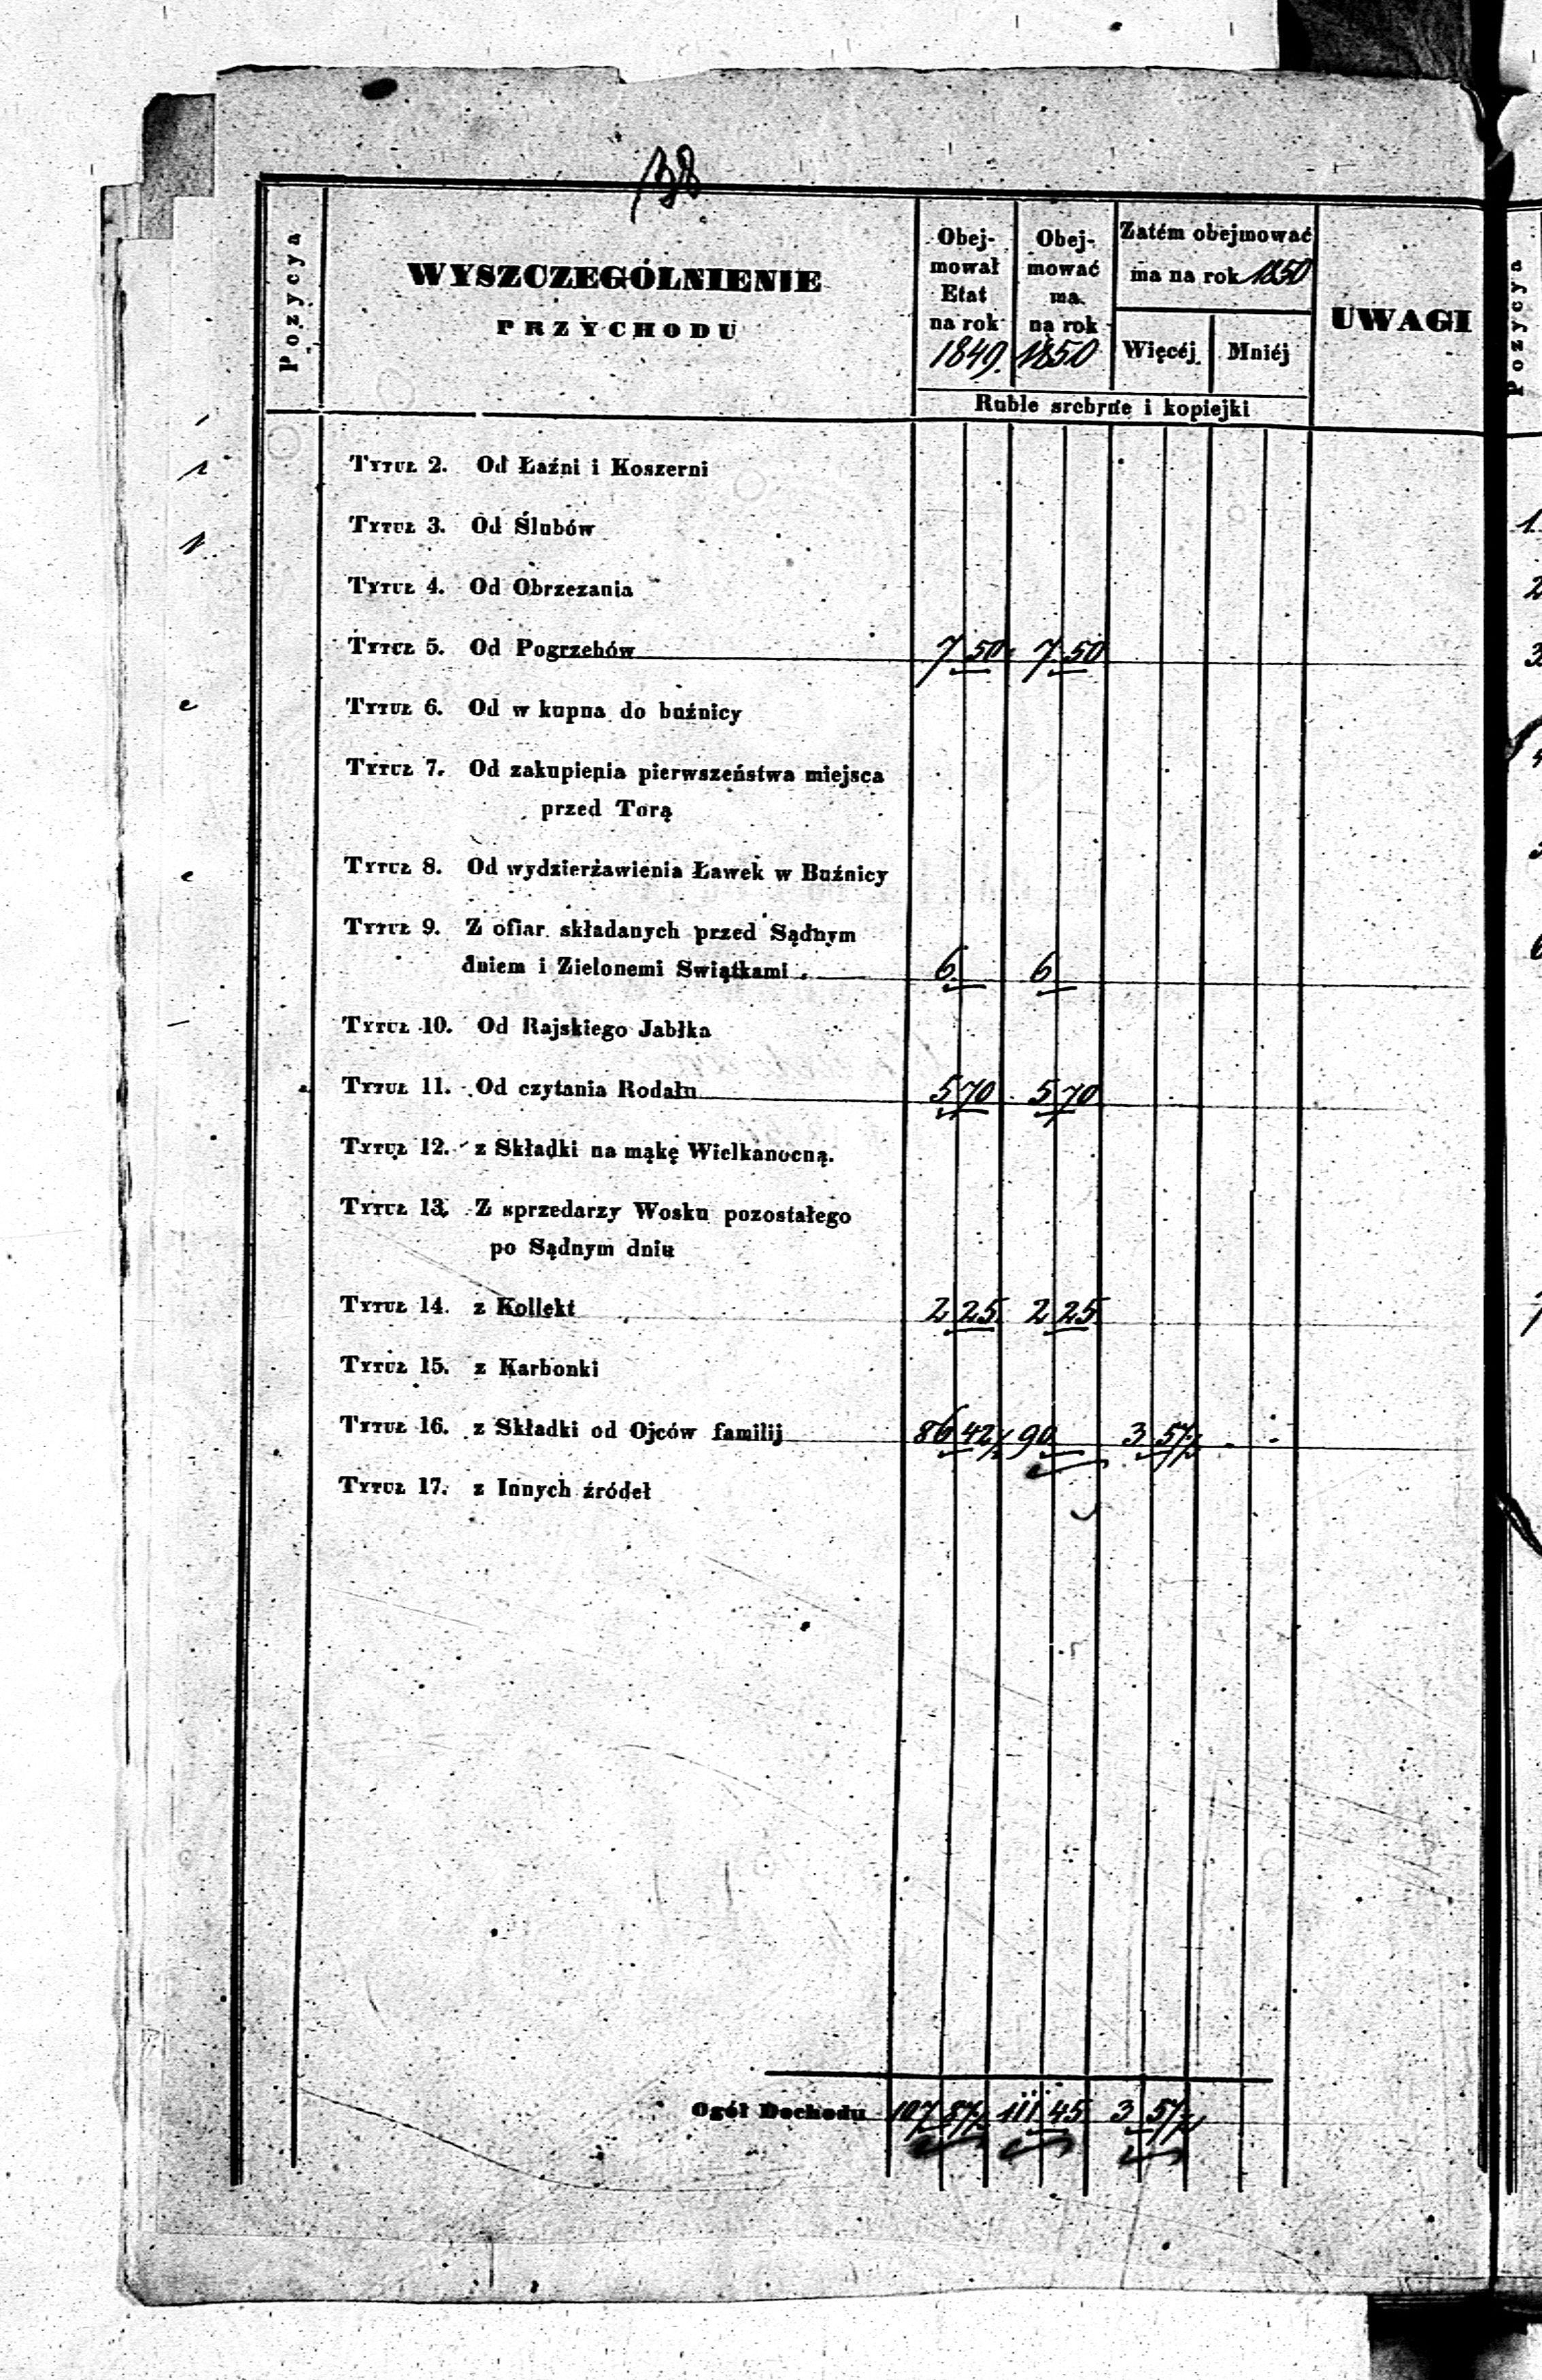 138
Pozycya
WYSZCZEGÓLNIENIE
PRZYCHODU
Obej-
mował
Etat
na rok
1849.
Obej-
mować
ma
na rok
1850
Zatém obejmować
ma na rok 1850
Więcéj
Mniéj
UWAGI
Ruble srebrne i kopiejki
Tytuł 2. Od Łaźni i Koszerni
Tytuł 3. Od Ślubów
Tytuł 4. Od Obrzezania
Tytuł 5. Od Pogrzebów 7 50 7 50
Tytuł 6. Od w kupna do bużnicy
Tytuł 7. Od zakupienia pierwszeństwa miejsca
przed Torą
Tytuł 8. Od wydzierżawienia Ławek w Buźnicy
Tytuł 9. Z ofiar składanych przed Sądnym
dniem i Zielonemi Swiątkami 6 6
Tytuł 10. Od Rajskiego Jabłka
Tytuł 11. Od czytania Rodału 5 70 5 70
Tytuł 12. z Składki na mąkę Wielkanocną.
Tytuł 13. Z sprzedarzy Wosku pozostałego
po Sądnym dniu
Tytuł 14. z Kollekt 2 25 2 25
Tytuł 15. z Karbonki
Tytuł 16. z Składki od Ojców familij 86 42½ 90 3 57½
Tytuł 17. z Innych źródeł
Ogół Dochodu 107 87½ 111 45 3 57½
Pozycya
1.
2
3